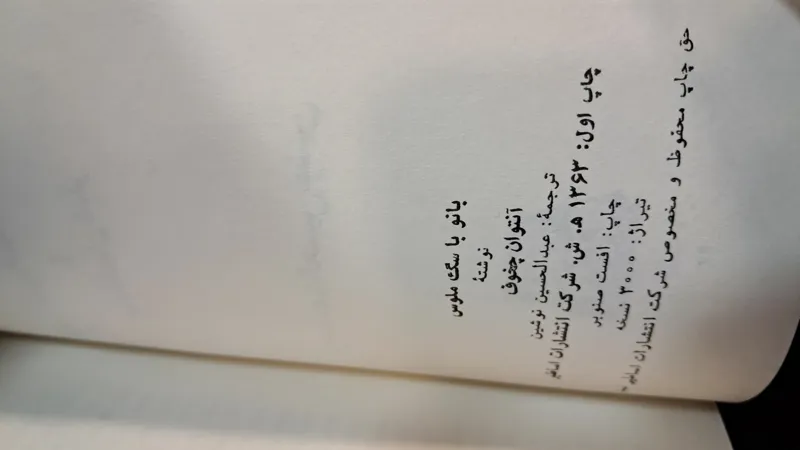 بانو با سگ ملوس
نوشتهٔ
آنتوان چخوف
ترجمهٔ: عبدالحسین نوشین
چاپ اول: ۱۳۶۳ ه‍. ش. شرکت انتشارات اساطیر
چاپ: افست صنوبر
تیراژ: ۳۰۰۰ نسخه
حق چاپ محفوظ و مخصوص شرکت انتشارات اساطیر